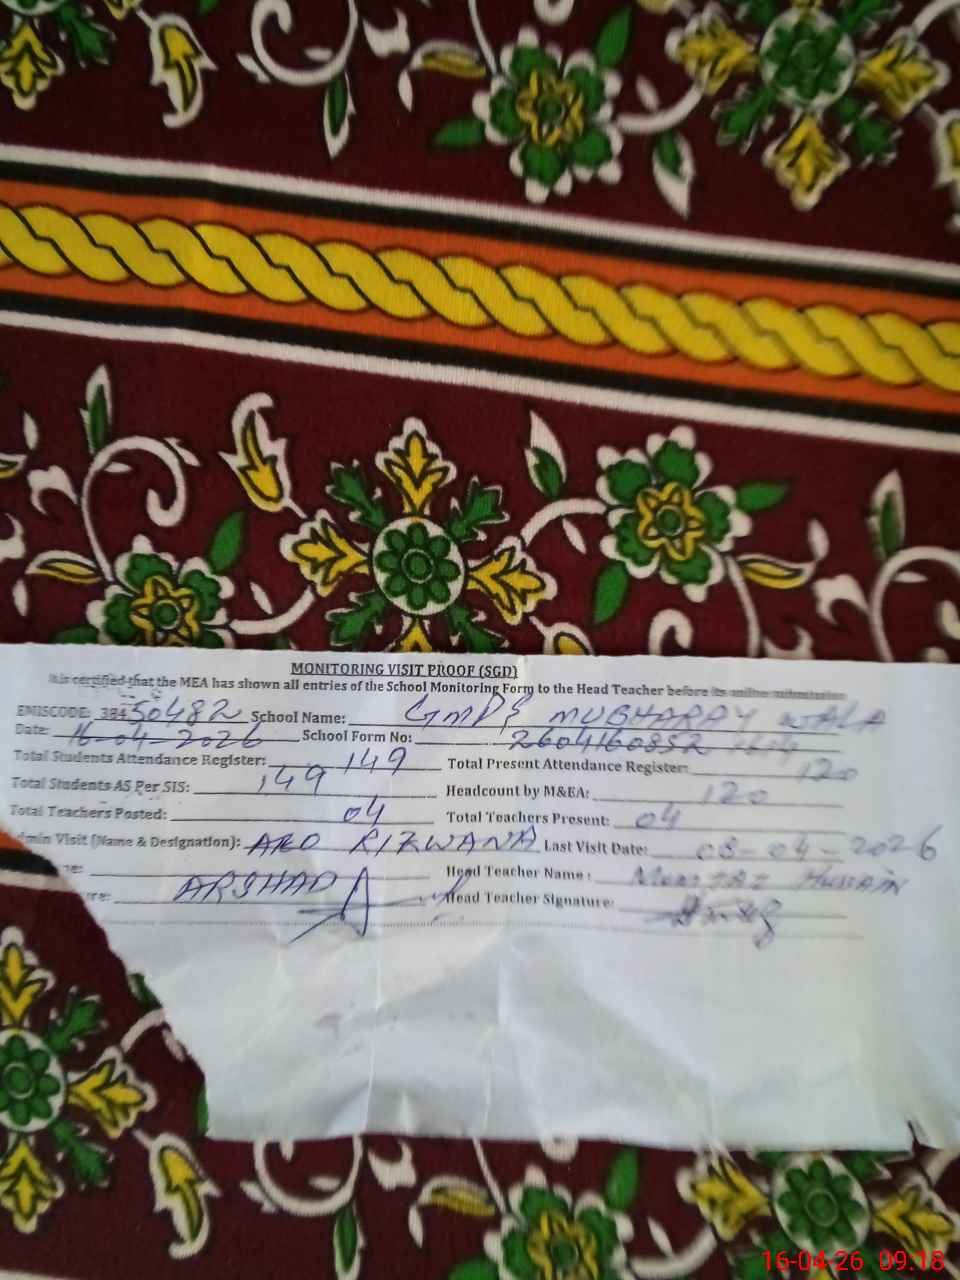 MONITORING VISIT PROOF (SGD)
It is certified that the MEA has shown all entries of the School Monitoring Form to the Head Teacher before its online submission
EMISCODE: 38450482 School Name: GMPS MUBHARAY WALA
Date: 16-04-2026 School Form No: 2604160852
Total Students Attendance Register: 149 Total Present Attendance Register: 120
Total Students AS Per SIS: 149 Headcount by M&EA: 120
Total Teachers Posted: 04 Total Teachers Present: 04
dmin Visit (Name & Designation): AEO RIZWANA Last Visit Date: 08-04-2026
me: ARSHAD Head Teacher Name: HUSSAIN
re: Head Teacher Signature:
16-04-26 09:18